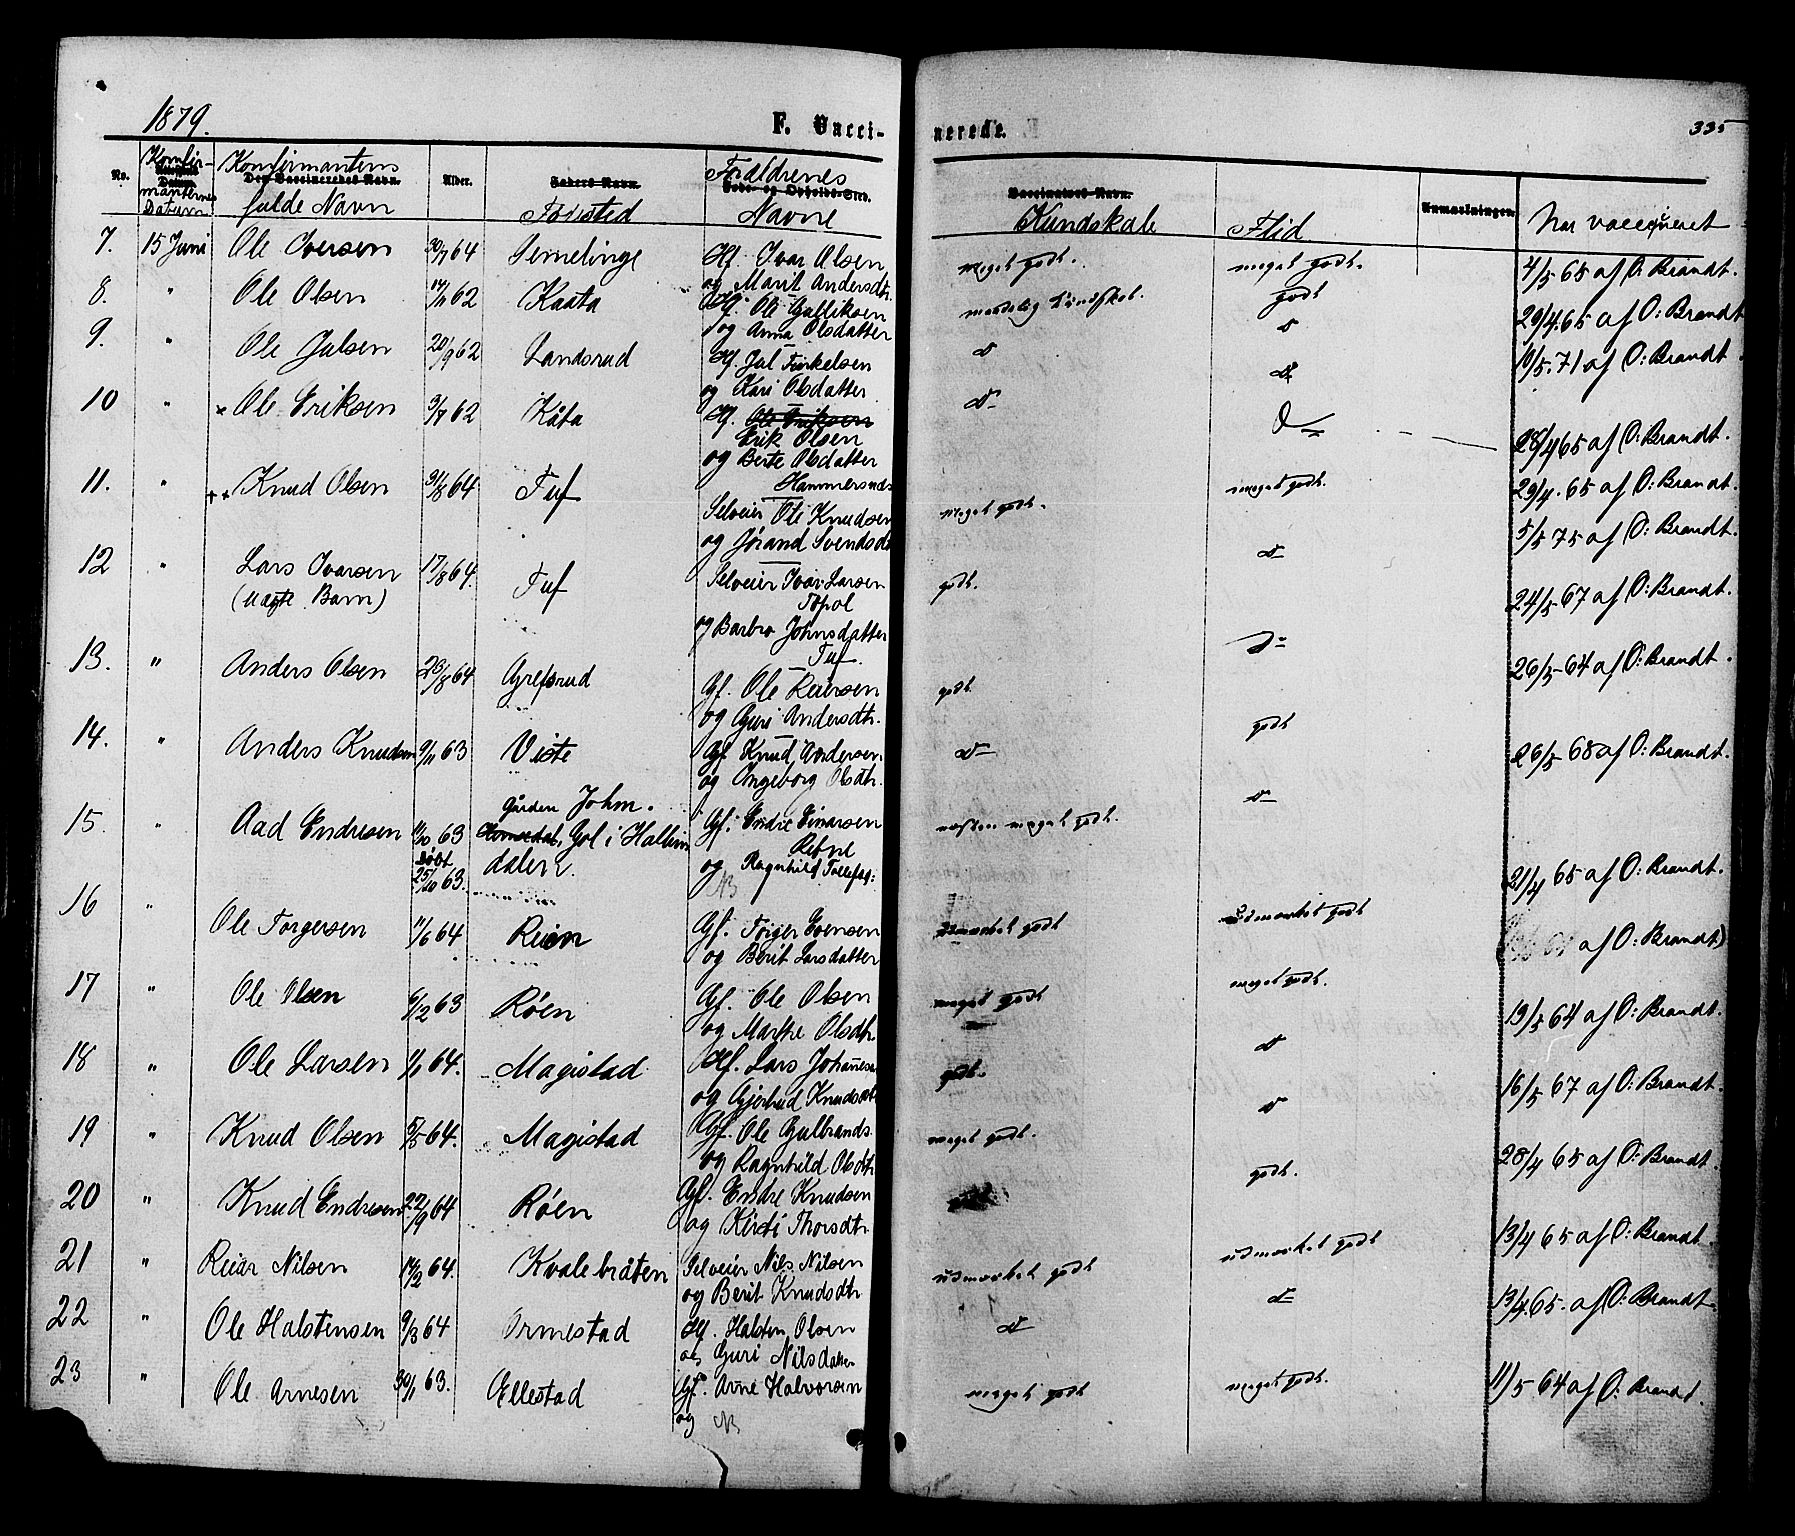 1879.
F. Vacci-
nerede.
335
No.
Konfir-
manternes
Datum
Konfirmantens
Den Vaccineredes Navn.
fulde Navn
Alder.
Faders Navn.
Födested
Foræløldrenes
Føde- og Opholds-Sted.
Navne
Vaccinators Navn.
Kundskab
Flid
Anmærkninger.
Naar vaccineret
7. 15 Juni Ole Iversen 30/7 64 Semelinge Hf. Ivar Olsen
og Marit Andersdtr.
meget godt. meget godt. 4/5 65 af O: Brandt.
8. " Ole Olsen 14/11 62 Kaata Hf. Ole Gulliksen
og Anna Olsdatter
maadelig Kundskab. godt 29/4 65 af O: Brandt
9. " Ole Julsen 20/9 62 Landsrud Hf. Jul Turkelsen
og Kari Olsdatter
10/5. 71 af O: Brandt.
10 " × Ole Eriksen 3/7 62 Kåta Hf. Ole Eriksen
Erik Olsen
og Berte Olsdatter
28/4 65 af O: Brandt.
11. " Knud Olsen 31/8 64 Tuf Hammersnds
Selveier Ole Knudsen
og Jörand Svendsd
meget godt. meget godt. 29/4. 65 af O: Brandt.
5/5 75 af O: Brandt.
12 " Lars Ivarsen 17/8 64. Tuf Selveier Ivar Larsen
(uægte Barn) Topol
og Barbro Johnsdatter
Tuf.
godt. 24/5 67 af O: Brandt.
13. " Anders Olsen 23/8 64 Grefsrud Gf. Ole Reiersen
og Guri Andersdtr.
godt. 26/5 64 af O: Brandt.
14. " Anders Knudsen 9/11 63 Viste Gf. Knud Andersen
og Ingeborg Olsdtr.
godt 26/5 68 af O: Brandt.
15. " Aad Endresen 11/10 63 Gården Johm.
Hemsedal, Gol i Hallin
dalen. Gf. Endre Einarsen
Refne
og Ragnhild Tollefsd:
døbt
25/10 63.
NB
næsten meget godt. 21/4 65 af O: Brandt.
16 " Ole Torgersen 11/6 64 Reien Gf. Torger Evensen
og Berit Larsdatter
udmærket godt udmærket godt af O: Brandt)
17 " Ole Olsen 6/2 63 Röen Gf. Ole Olsen
og Marthe Olsdtr.
meget godt meget godt. 19/5 64 af O: Brandt.
18 " Ole Larsen 1/1 64. Magistad Hf. Lars Johannesen
og Gjertrud Knudsdt
godt. 16/5 67 af O: Brandt.
19 " Knud Olsen 5/5 64. Magistad Gf. Ole Gulbrands.
og Ragnhild Olsdtr
meget godt. godt. 28/4 65 af O: Brandt.
20 " Knud Endresen 22/9 64 Röen Gf. Endre Knudsen
og Kirsti Thorsdtr
13/4 65 af O: Brandt.
21 " Reiar Nilsen 14/2 64. Kvalebråten Selveier Nils Nilsen
og Berit Knudsdtr
udmærket godt udmærket godt 13/4 65. af O: Brandt.
22 " Ole Halstensen 9/3 64 Ormestad Hf. Halsten Olsen
og Guri Nilsdatter
23 " Ole Arnesen 30/1 63. Ellestad Gf. Arne Halvorsen
og NB
meget godt meget godt. 11/5 64 af O: Brandt.